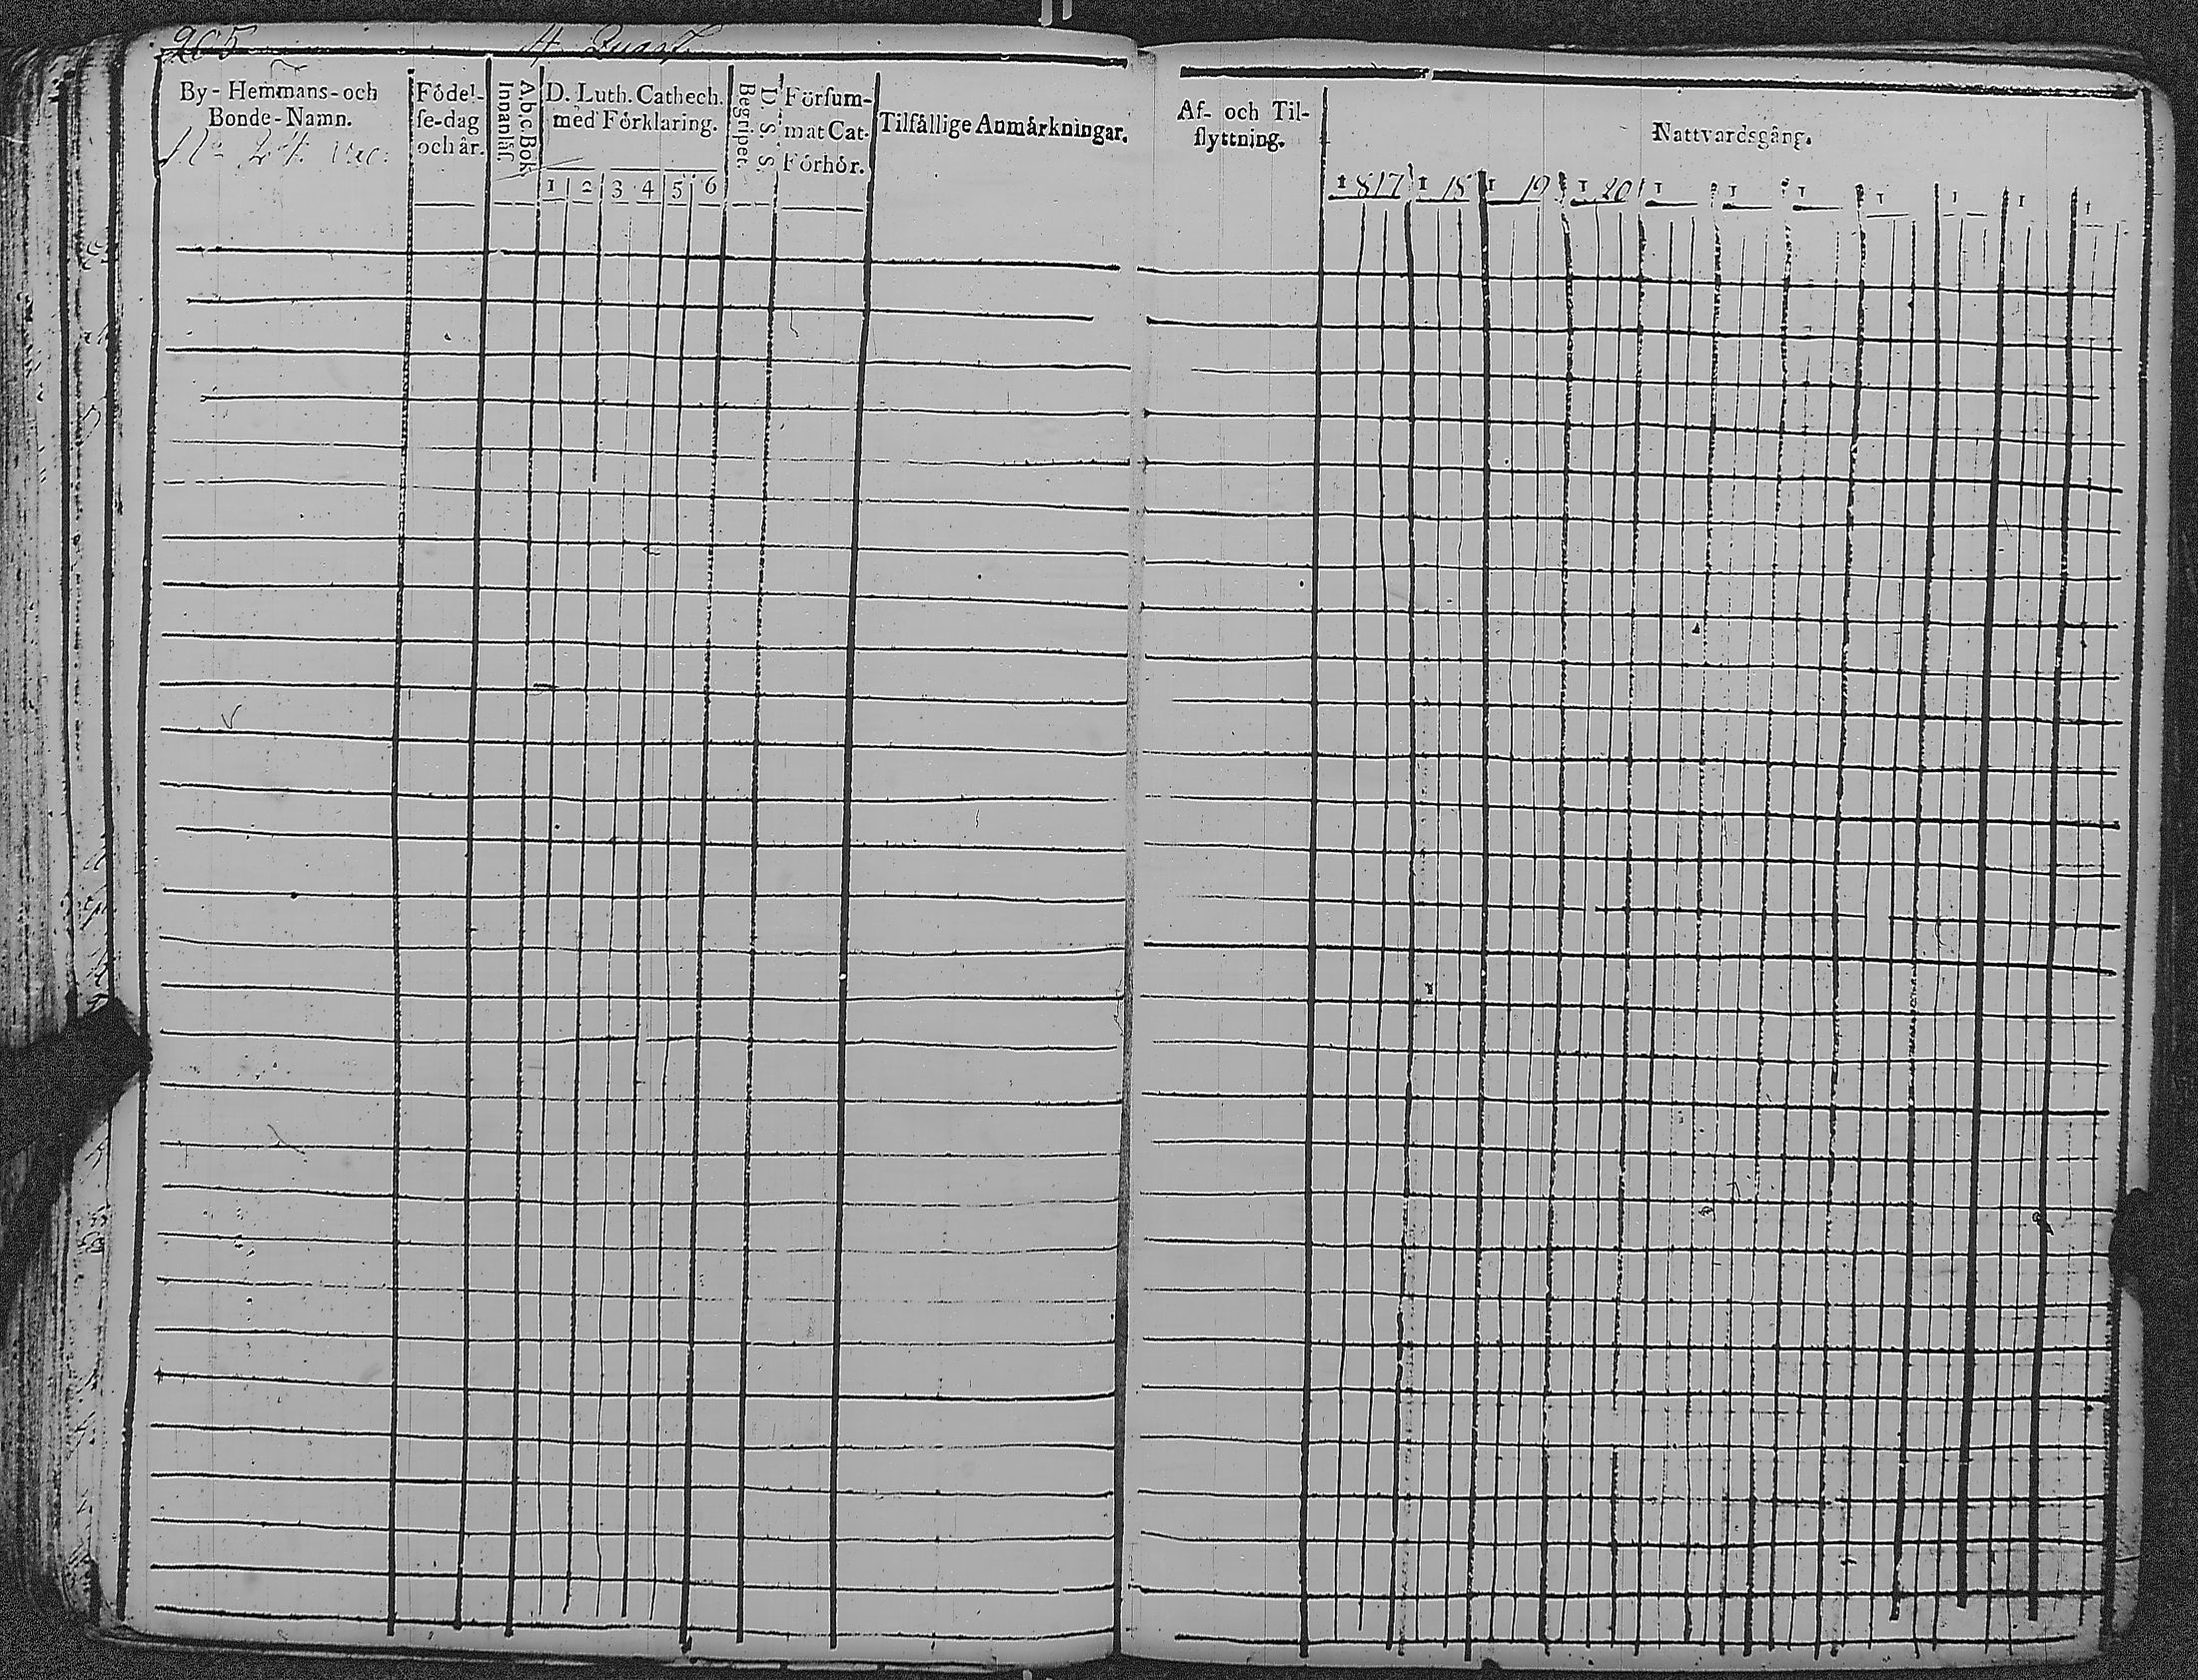 205 4 Quart.
By- Hemmans- och
Bonde-Namn.
No 24. vac:
Födel-
se-dag
och år.
Abc Bok
Innanläs.
D. Luth. Cathech.
med Förklaring.
1 2 3 4 5 6
D. S. S.
Begripet.
Försum-
mat Cat.
Förhör.
Tilfällige Anmärkningar.
Af- och Til-
flyttning.
Nattvardsgång.
1817 1 18 1 19 1 20 1 1 1 1 1 1 1